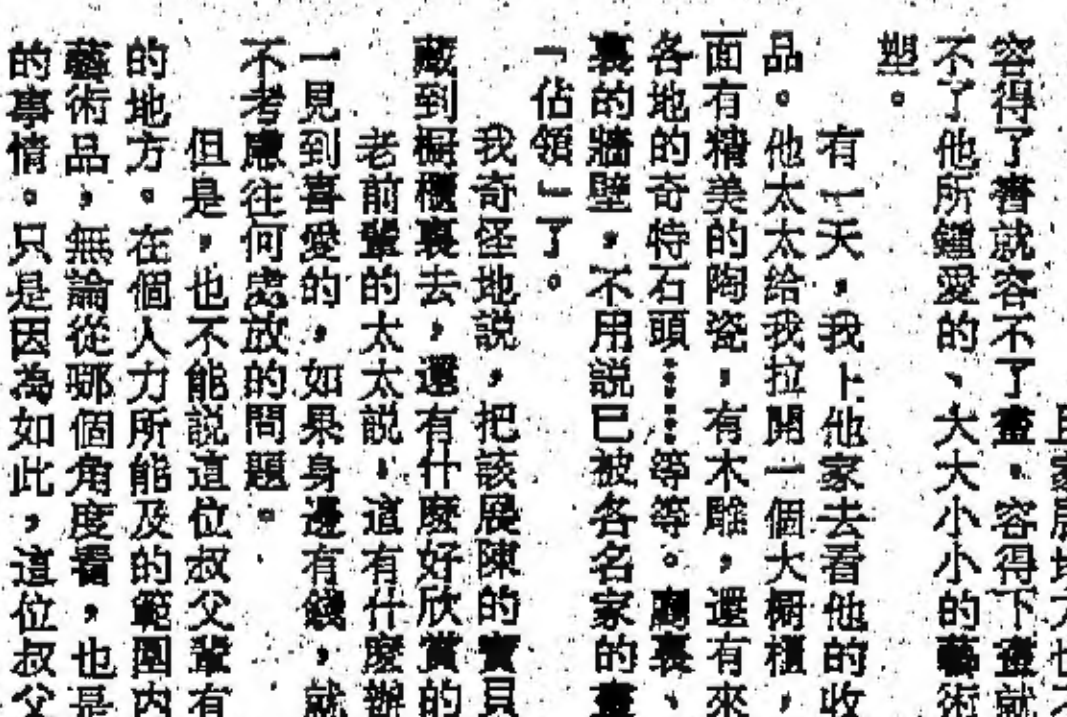 容得了書就容不了畫。容得下畫就
不了他所鍾愛的、大大小小的藝術
塑。
有一天,我上他家去看他的收
品。他太太给我拉開一個大櫥櫃,
面有精美的陶瓷,有木雕,還有來
各地的奇特石頭……等等。廳裏、
裏的牆壁,不用説已被各名家的畫
「佔領」了。
我奇怪地説,把該展陳的寶貝
藏到櫥櫃裏去,還有什麽好欣賞的
老前輩的太太説,這有什麽辦
一見到喜愛的,如果身邊有錢,就
不考慮往何處放的問題。
但是,也不能説這位叔父輩有
的地方。在個人力所能及的範圍内
藝術品,無論從哪個角度看,也是
的事情。只是因為如此,這位叔父